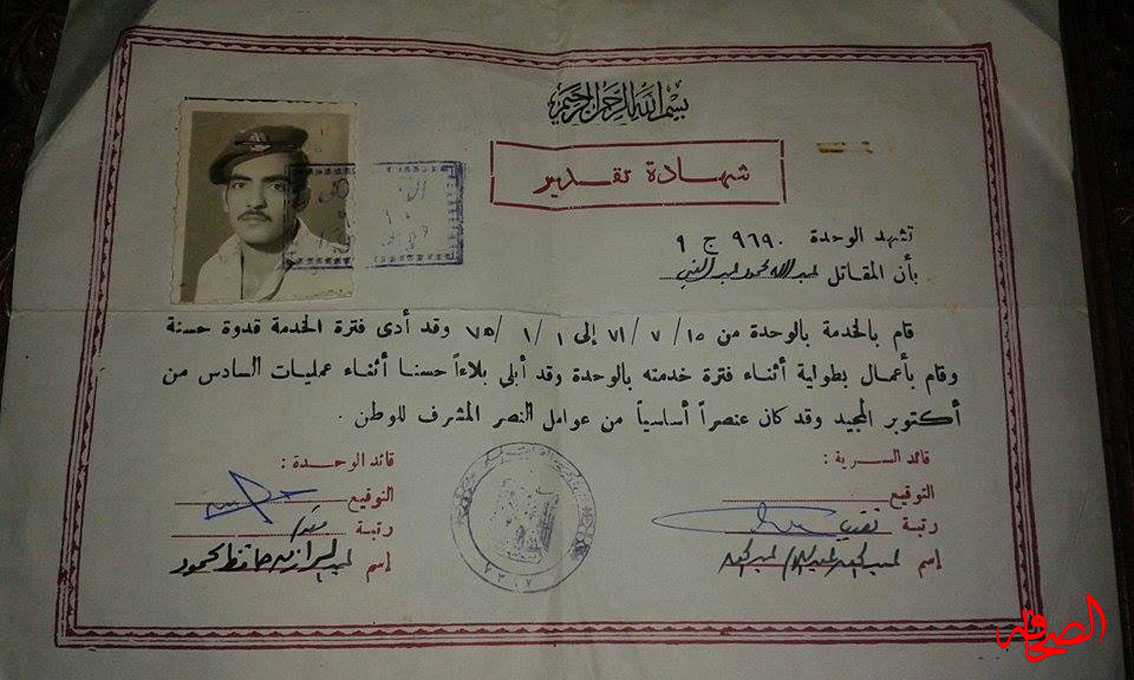 بسم الله الرحمن الرحيم
شهادة تقدير
تشهد الوحدة ٩٦٩٠ ج ٩
بأن المقاتل عبد الله محمود عبد الغني
قام بالخدمة بالوحدة من ١٥ / ٧ / ٧١ إلى ١ / ١ / ٧٥ وقد أدى فترة الخدمة قدوة حسنة
وقام بأعمال بطولية أثناء فترة خدمته بالوحدة وقد أبلى بلاءاً حسنا أثناء عمليات السادس من
أكتوبر المجيد وقد كان عنصراً أساسياً من عوامل النصر المشرف للوطن .
قائد السرية :
التوقيع
رتبة نقيب
إسم
قائد الوحدة :
التوقيع
رتبة مقدم /
إسم عبد الرازق حافظ محمود
الصحافة